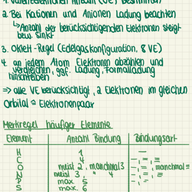 2. Bei Kationen und Anionen Ladung beachten
↳ Anzahl der berücksichtigenden Elektronen steigt
bzw. sinkt
3. Oktett-Regel (Edelgaskonfiguration, 8 VE)
4. an jedem Atom Elektronen abzählen und
vergleichen, ggf. Ladung, Formalladung
hinschreiben
⇒ alle VE berücksichtigt, 2 Elektronen im gleichen
Orbital = Elektronenpaar
Merkregel häufiger Elemente
Element Anzahl Bindung Bindungsart
H 1 –
C 4
O meist 2, manchmal 3 manchmal
N meist 3, " 4
P max. 5
S max. 6